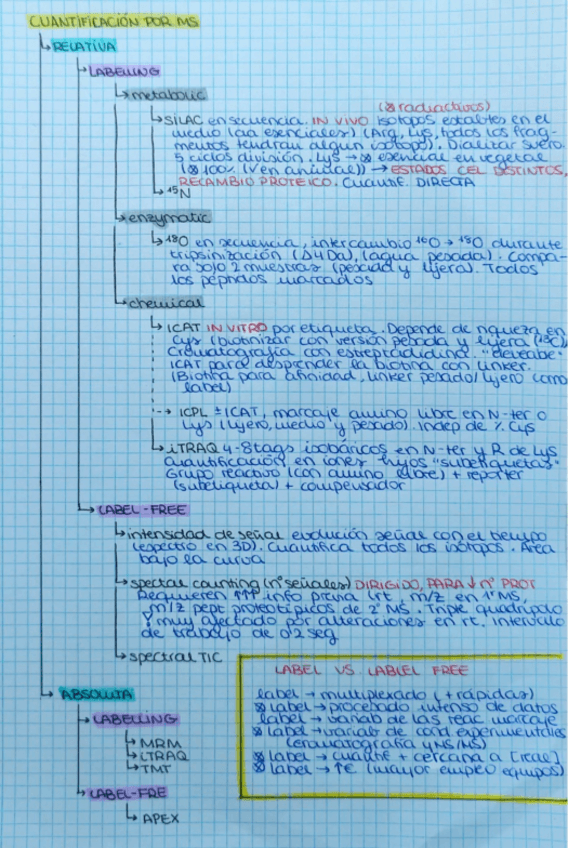 CUANTIFICACIÓN POR MS
↳ RELATIVA
↳ LABELLING
↳ metabolic
(⊗ radiactivos)
↳ SILAC en secuencia. IN VIVO isótopos estables en el
medio (aa esenciales) (Arg, Lys, todos los frag-
mentos tendrán algún isótopo). Dializar suero.
5 ciclos división. Lys → ⊗ esencial en vegetal
(⊗ 100% (√ en animal)) → ESTADOS CEL DISTINTOS,
RECAMBIO PROTEICO. Cuantif. DIRECTA
↳ ¹⁵N
↳ enzymatic
↳ ¹⁸O en secuencia, intercambio ¹⁶O → ¹⁸O durante
tripsinización (Δ4Da), (agua pesada). Compa-
ra sólo 2 muestras (pesada y ligera). Todos
los péptidos marcados
↳ chemical
↳ ICAT IN VITRO por etiqueta. Depende de riqueza en
Cys (biotinizar con versión pesada y ligera (¹³C)).
Cromatografía con estreptavidina. "cleveabe"
ICAT para desprender la biotina con linker.
(Biotina para afinidad, linker pesado/ligero como
label)
→ ICPL ± ICAT, marcaje amino libre en N-ter o
Lys (ligero, medio y pesado). Indep de % Cys
↳ iTRAQ 4-8 tags isobáricos en N-ter y R de Lys
Cuantificación en iones hijos "subetiquetas"
Grupo reactivo (con amino libre) + reporter
(subetiqueta) + compensador
↳ LABEL-FREE
↳ intensidad de señal evolución señal con el tiempo
(espectro en 3D). Cuantifica todos los isótopos. Área
bajo la curva
↳ spectral counting (nº señales) DIRIGIDO, PARA ↓ nº PROT
Requieren ↑↑↑ info previa (rt, m/z en 1º MS,
m/z pept proteotípicos de 2º MS). Triple quadrupolo
y muy afectado por alteraciones en rt. Intervalo
de trabajo de 0'2 seg
↳ spectral TIC
↳ ABSOLUTA
↳ LABELLING
↳ MRM
↳ iTRAQ
↳ TMT
↳ LABEL-FRE
↳ APEX
LABEL VS. LABLEL FREE
label → multiplexado (+ rápidas)
⊗ label → procesado intenso de datos
label → variab de las reac marcaje
⊗ label → variab de cond experimentales
(cromatografía y MS/MS)
⊗ label → cuantif + cercana a [real]
⊗ label → ↑€ (mayor empleo equipos)